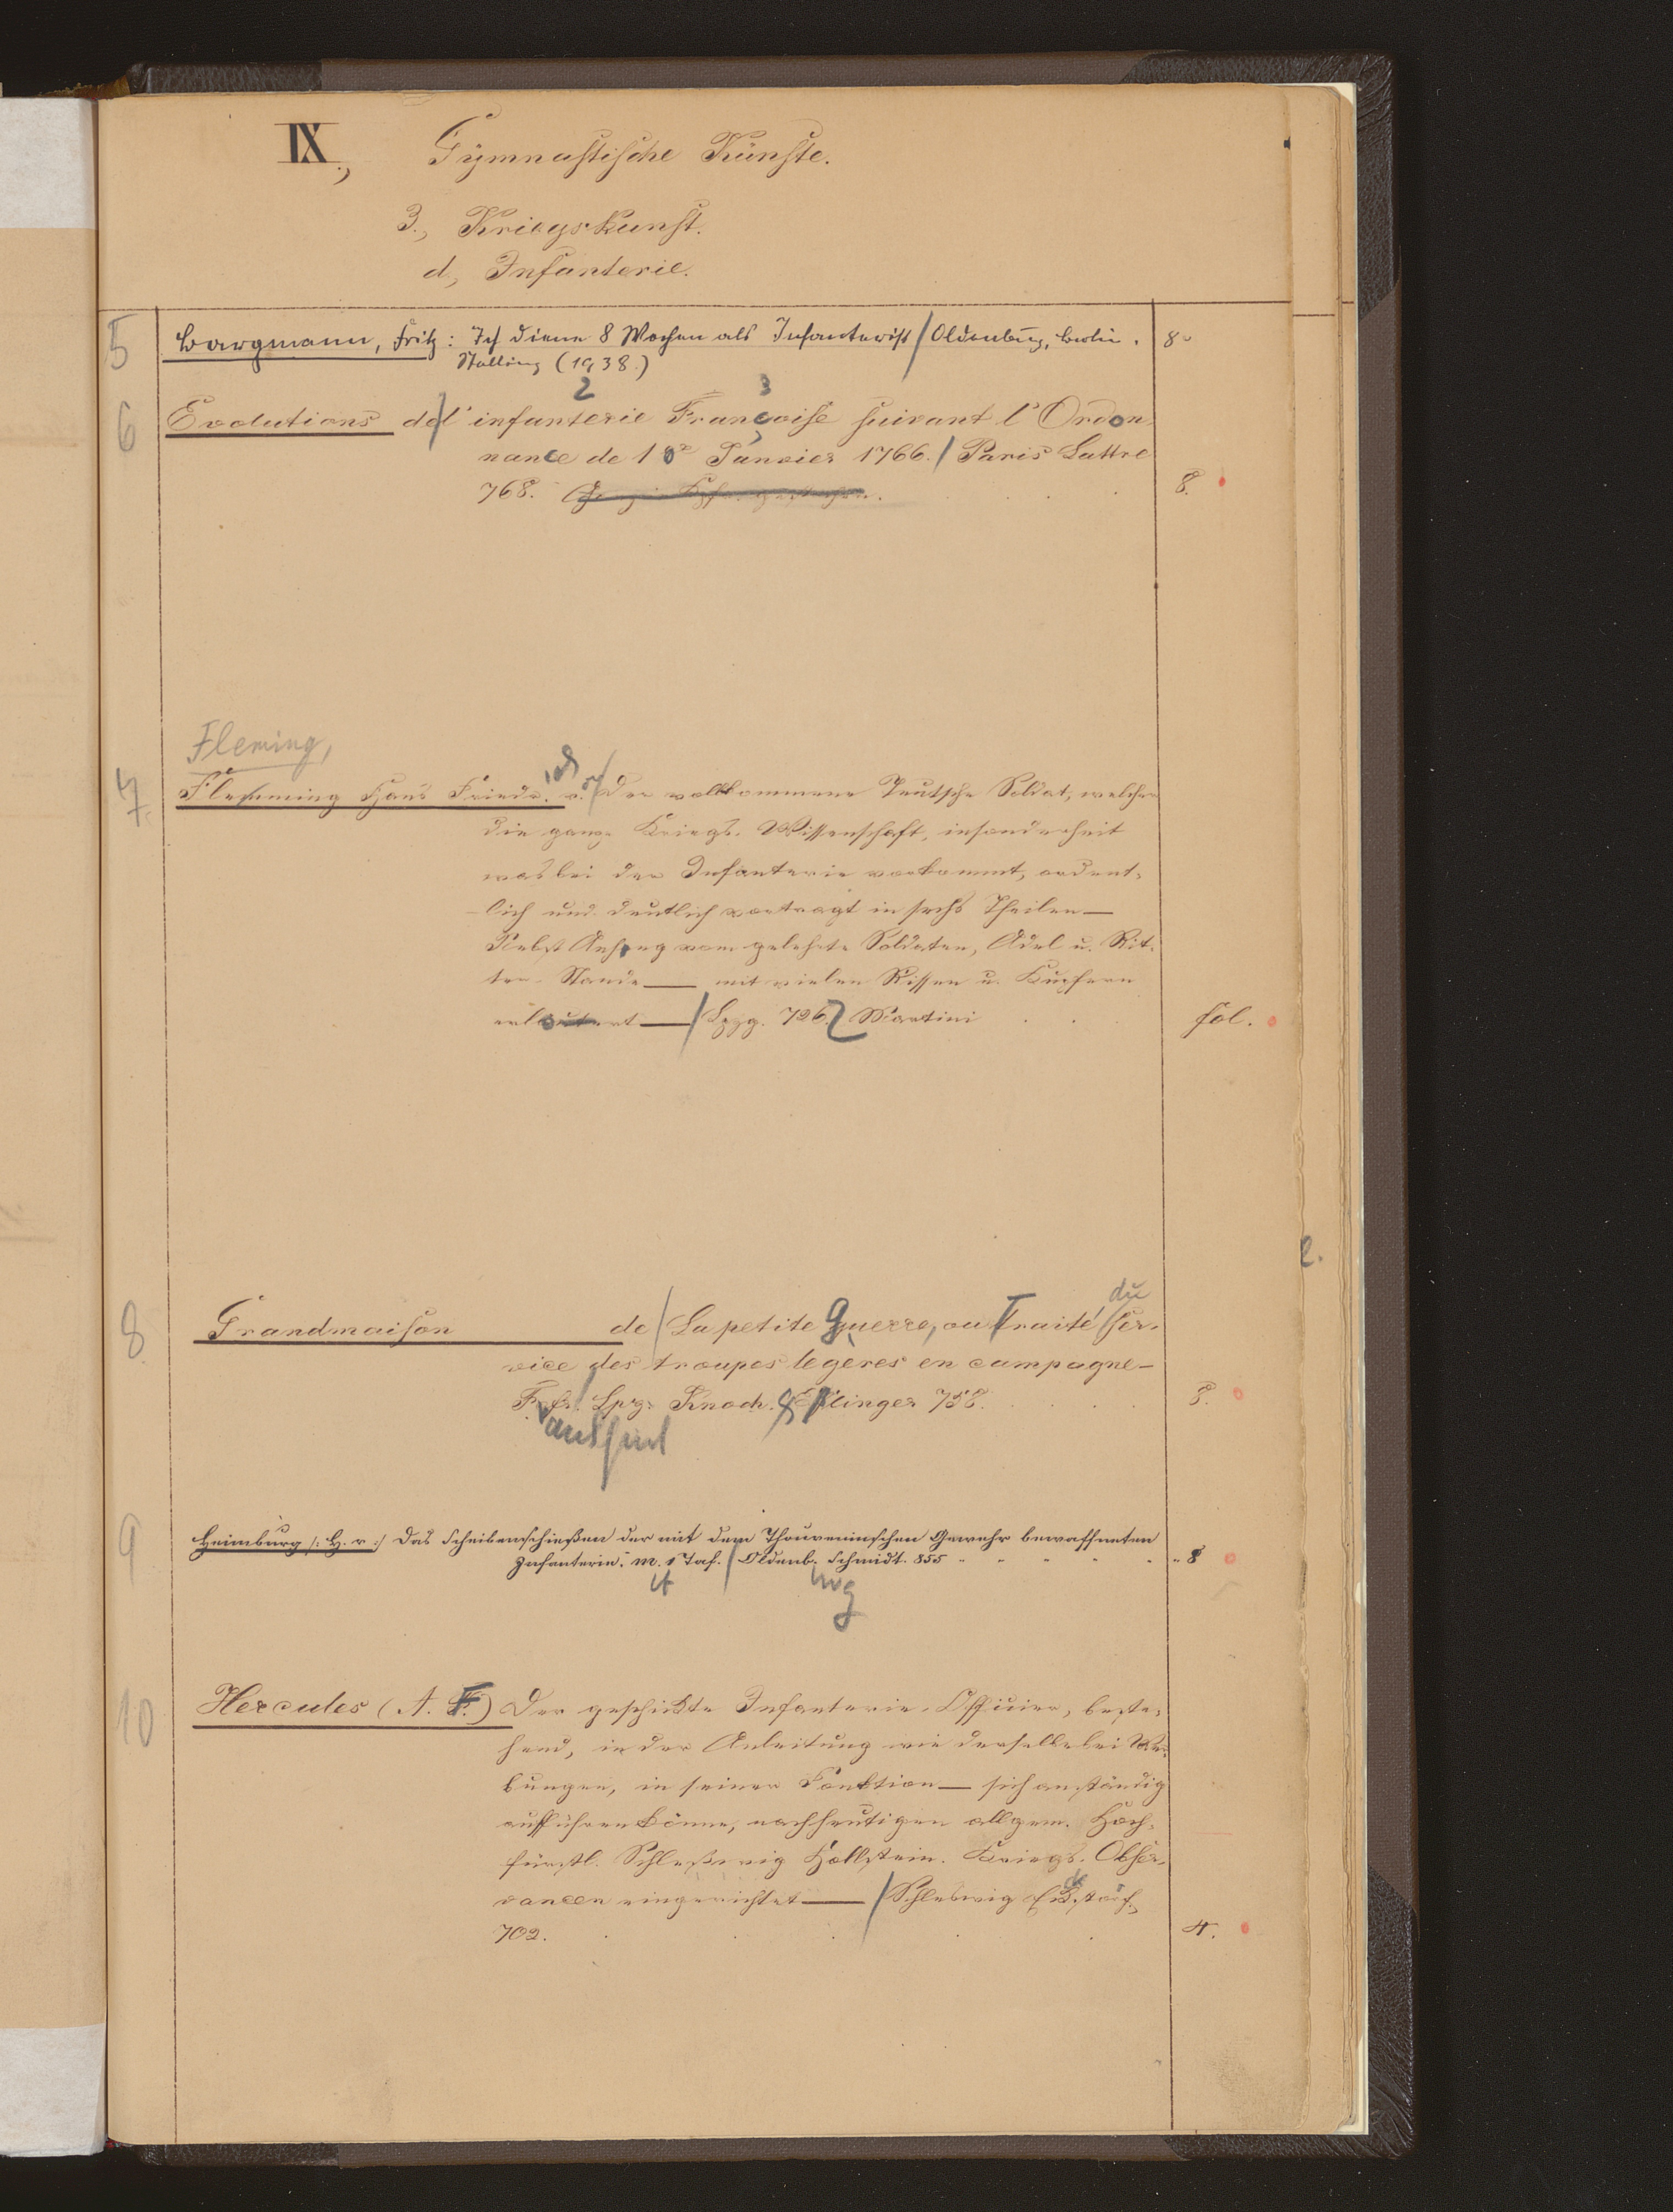 IX., Gymnastische Künste.
3., Kriegskunst.
d., Infanterie.
5 Bargmann, Fritz: Ich diene 8 Wochen als Infanterist / Oldenburg, Berlin. 8°
Stalling (1938.)
2 3
6 Evolutions de l'infanterie Françoise suivant l'Ordon-
nance de 1 Janvier 1766. / Paris Lattre
768. 8.
Fleming,
7. Flemming Hans Friedr. v. / Der vollkommene Teutsche Soldat, welcher
die ganze Kriegs-Wissenschaft, insonderheit
was bei der Infanterie vorkommt, ordent-
lich und deutlich vortragt in sechs Theilen—
Nebst Anhang vom gelehrte Soldaten, Adel u. Rit-
ter-Stande — mit vielen Rissen u. Kupfern
erläutert — / Lpzg. 726. Martini fol.
2.
du
8. Grandmaison de / La petite Guerre, ou Traité Ser-
vice des troupes legères en campagne—
Frf. Lpzg. Knoch & Esslinger 758. 8.
9 Heimburg /: H. v :/ Das Scheibenschießen der mit dem Thouveninschen Gewehr bewaffneten
Infanterie. m. 1 Taf. / Oldenb. Schmidt. 855 " 8
10 Hercules (A. F.) Der geschickte Infanterie-Officier, beste-
hend, in der Anleitung wie derselbe bei Wer-
bungen, in seiner Fonktion — sich anständig
aufführen könne, nach heutigen allgem. Hoch-
fürstl. Schleßwig Hollstein. Kriegs-Obser-
vancen eingerichtet — / Schleswig
702. 4.